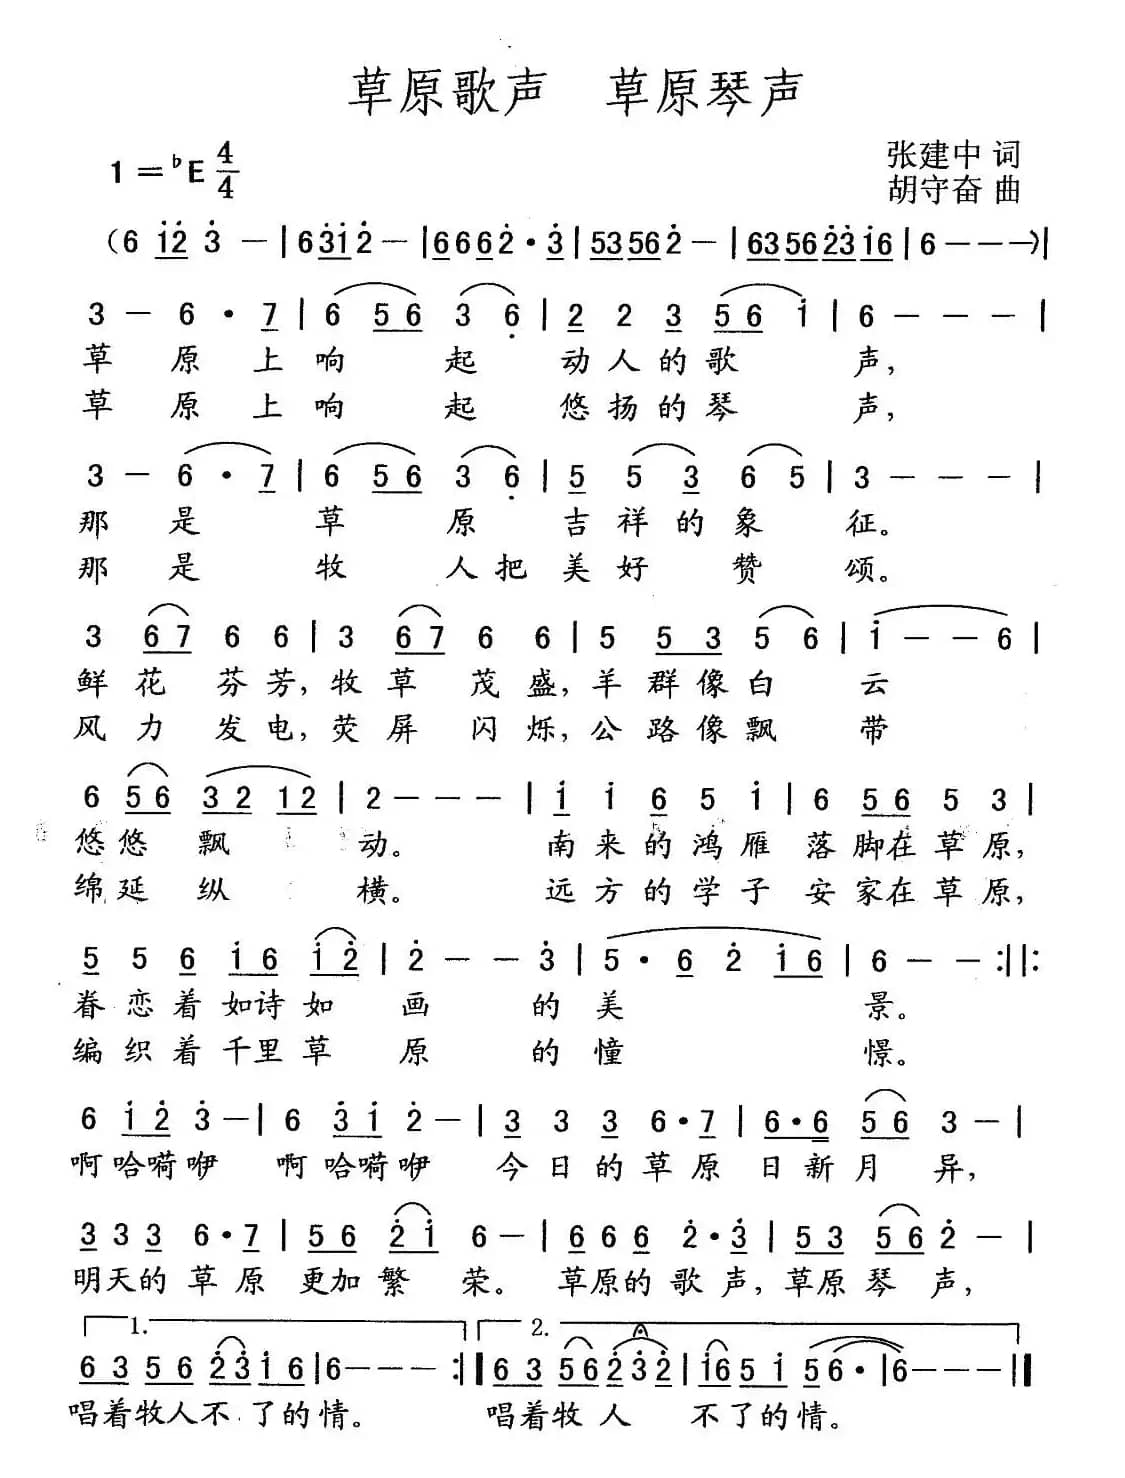 草原歌声　草原琴声
1=♭E 4/4
张建中 词
胡守奋 曲
(6 1̲̇2̲̇ 3̇ - | 6 3̲̇1̲̇ 2̇ - | 6̲ 6 6̲ 2̇ · 3̲̇ | 5̲3̲ 5̲6̲ 2̇ - | 6̲3̲ 5̲6̲ 2̲̇3̲̇ 1̲̇6̲ | 6 - - -) |
3 - 6 · 7̲ | 6 5̲6̲ 3 6̣ | 2̲ 2 3̲ 5̲6̲ 1̇ | 6 - - - |
草 原 上 响 起 动 人 的 歌 声，
草 原 上 响 起 悠 扬 的 琴 声，
3 - 6 · 7̲ | 6 5̲6̲ 3 6̣ | 5̲ 5 3̲ 6 5 | 3 - - - |
那 是 草 原 吉 祥 的 象 征。
那 是 牧 人 把 美 好 赞 颂。
3 6̲7̲ 6 6 | 3 6̲7̲ 6 6 | 5 5̲3̲ 5 6 | 1̇ - - 6 |
鲜 花 芬 芳，牧 草 茂 盛，羊 群 像 白 云
风 力 发 电，荧 屏 闪 烁，公 路 像 飘 带
6 5̲6̲ 3̲2̲ 1̲2̲ | 2 - - - | 1̲̇ 1̇ 6̲ 5 1̇ | 6 5̲6̲ 5 3 |
悠 悠 飘 动。 南 来 的 鸿 雁 落 脚 在 草 原，
绵 延 纵 横。 远 方 的 学 子 安 家 在 草 原，
5̲ 5 6̲ 1̲̇6̲ 1̲̇2̲̇ | 2̇ - - 3̇ | 5 · 6̲ 2̇ 1̲̇6̲ | 6 - - :||:
眷 恋 着 如 诗 如 画 的 美 景。
编 织 着 千 里 草 原 的 憧 憬。
6 1̲̇2̲̇ 3̇ - | 6 3̲̇1̲̇ 2̇ - | 3̲ 3 3̲ 6 · 7̲ | 6̲ · 6̳ 5̲6̲ 3 - |
啊 哈 嗬 咿 啊 哈 嗬 咿 今 日 的 草 原 日 新 月 异，
3̲ 3 3̲ 6 · 7̲ | 5̲6̲ 2̲̇1̲̇ 6 - | 6̲ 6 6̲ 2̇ · 3̲̇ | 5̲3̲ 5̲6̲ 2̇ - |
明天的 草 原 更加 繁 荣。 草原的 歌 声，草原 琴 声，
1. 2.
6̲3̲ 5̲6̲ 2̲̇3̲̇ 1̲̇6̲ | 6 - - - :|| 6̲3̲ 5̲6̲ 2̲̇3̲̇ 2̲̇ | 1̲̇6̲ 5̲ 1̲̇ 5̲6 · | 6 - - - ||
唱着牧人不了的情。 唱着牧人 不了的情。